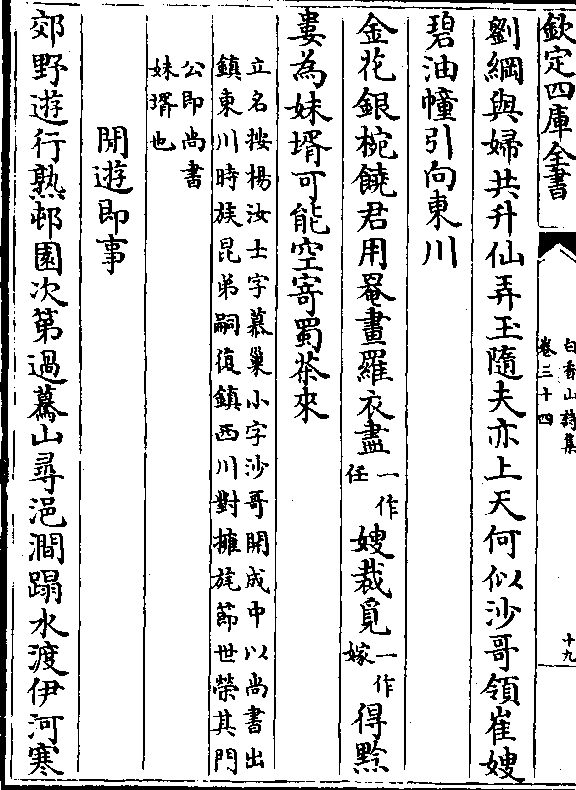 欽定四庫全書
白香山詩集
卷三十四
十九
劉綱與婦共升仙弄玉隨夫亦上天何似沙哥領崔嫂
碧油幢引向東川
金花銀椀饒君用罨畫羅衣盡一作任嫂裁覓一作嫁得黔
婁為妹壻可能空寄蜀茶來
立名按楊汝士字慕巢小字沙哥開成中以尚書出
鎮東川時族昆弟嗣復鎮西川對擁旄節世榮其門
公即尚書
妹壻也
閒遊即事
郊野遊行熟邨園次第過驀山尋浥澗蹋水渡伊河寒